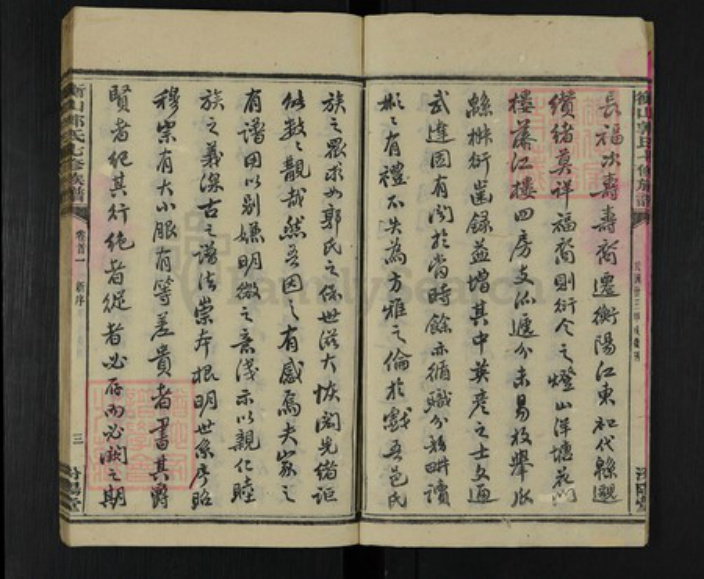 長福次壽壽裔遷衡陽江東和代緜遐
纘緒莫詳福裔則衍今之燈山洋塘花門
樓藻江樓四房支派遞分未易枚舉瓜
緜椒衍齒錄益增其中英彥之士文通
武達固有聞於當時餘亦循職分務畊讀
彬彬有禮不失為方雅之倫於戲吾邑氏
族之眾求如郭氏之保世滋大恢閎先緒詎
世數數覯哉然吾因之有感焉夫家之
有譜因以別嫌明微之意淺示以親仁睦
族之義深古之譜法崇本根明世系序昭
穆宗有大小服有等差貴者書其爵
賢者紀其行絶者從者必存而必闕之期
衡山郭氏七修族譜
卷首一
新序
三
汾陽堂
衡山郭氏七修族譜
汾陽堂
FamilySearch